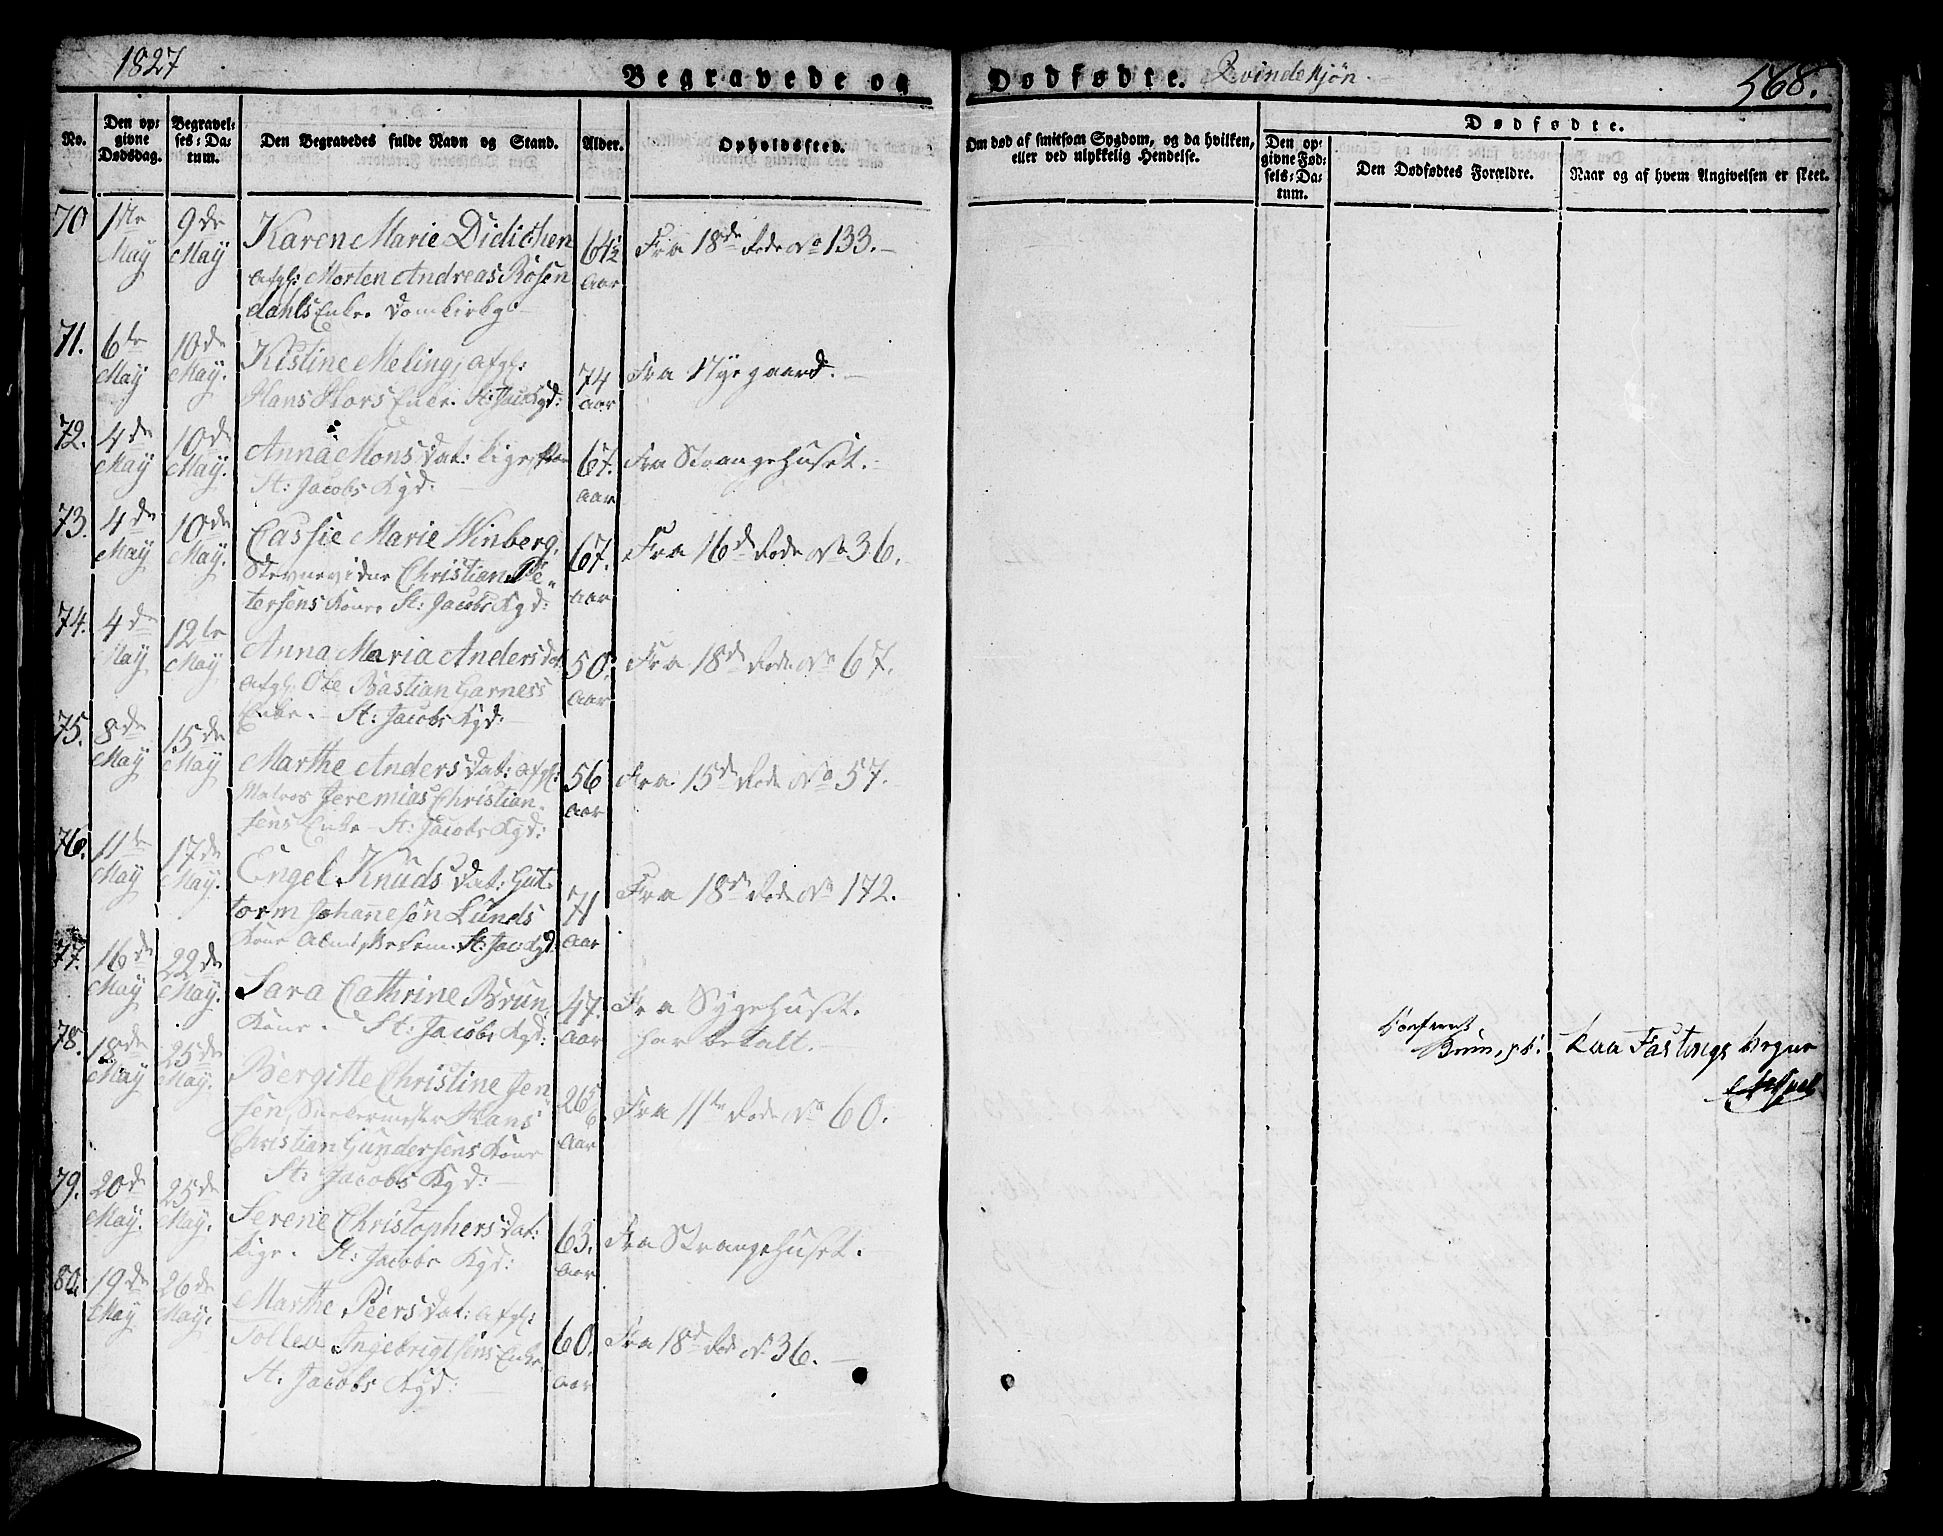 1827
Begravede og Dødfødte. Qvindekjøn.
568.
No.
Den op-
givne
Dødsdag.
Begravel-
ses-Da-
tum.
Den Begravedes fulde Navn og Stand.
Alder.
Opholdssted.
Om død af smitsom Sygdom, og da hvilken,
eller ved ulykkelig Hendelse.
Dødfødte.
Den op-
givne Fød-
sels-Da-
tum.
Den Dødfødtes Forældre.
Naar og af hvem Angivelsen er skeet.
70 1ste May 9de May Karen Marie Didichen
afgl: Morten Andreas Rosen
dahls Enke. Domkirkg
64½ Aar
Fra 18de Rode No 133.
71. 6te May 10de May. Kistine Meling, afgl:
Hans Hors Enke. St: Jac Kgd:
74 Aar
Fra Nyegaard.
72. 4de May 10de May. Anna Monsdat: Pige,
St: Jacobs Kgd:
67. Aar
Fra Strangehuset.
73. 4de May 10de May. Cassie Marie Winberg,
Stevnevidne Christian Pe-
tersens Kone St: Jacobs Kgd:
67. Aar
Fra 16de Rode No 36.
74. 4de May 12te May Anna Maria Andersdat
afgl. Ole Bastian Garness
Enke. St: Jacobs Kgd:
50. Aar
Fra 18de Rode No 67.
75. 8de May 15de May Marthe Andersdat: afgl:
Matros Jeremias Christian-
sens Enke St: Jacobs Kgd:
56 Aar
Fra 15de Rode No 57.
76. 11te May 17de May. Engel Knudsdat: Gut-
torm Johannesön Lunds
Kone St: Jac Kgd
71 Aar
Fra 18de Rode No 172.
77. 16de May 22de May. Sara Cathrine Brun,
Kone. St: Jacobs Kgd:
47. Aar
Fra Sygehuset.
har betalt.
78. 18de May 25de May. Bergitte Christine Jen
sen, Hans
Christian Gundersens Kone
St: Jacobs Kgd:
26 Aar
Fra 11te Rode No 60.
79. 20de May. 25de May. Serene Christophersdat:
Pige. St: Jacobs Kgd:
63. Aar
Fra Strangehuset.
80. 19de May 26de May. Marthe Peersdat: afgl:
Tollev Ingebrigtsens Enke
St. Jacobs Kgd:
60. Aar
Fra 18de Rode No 36.
Fastings